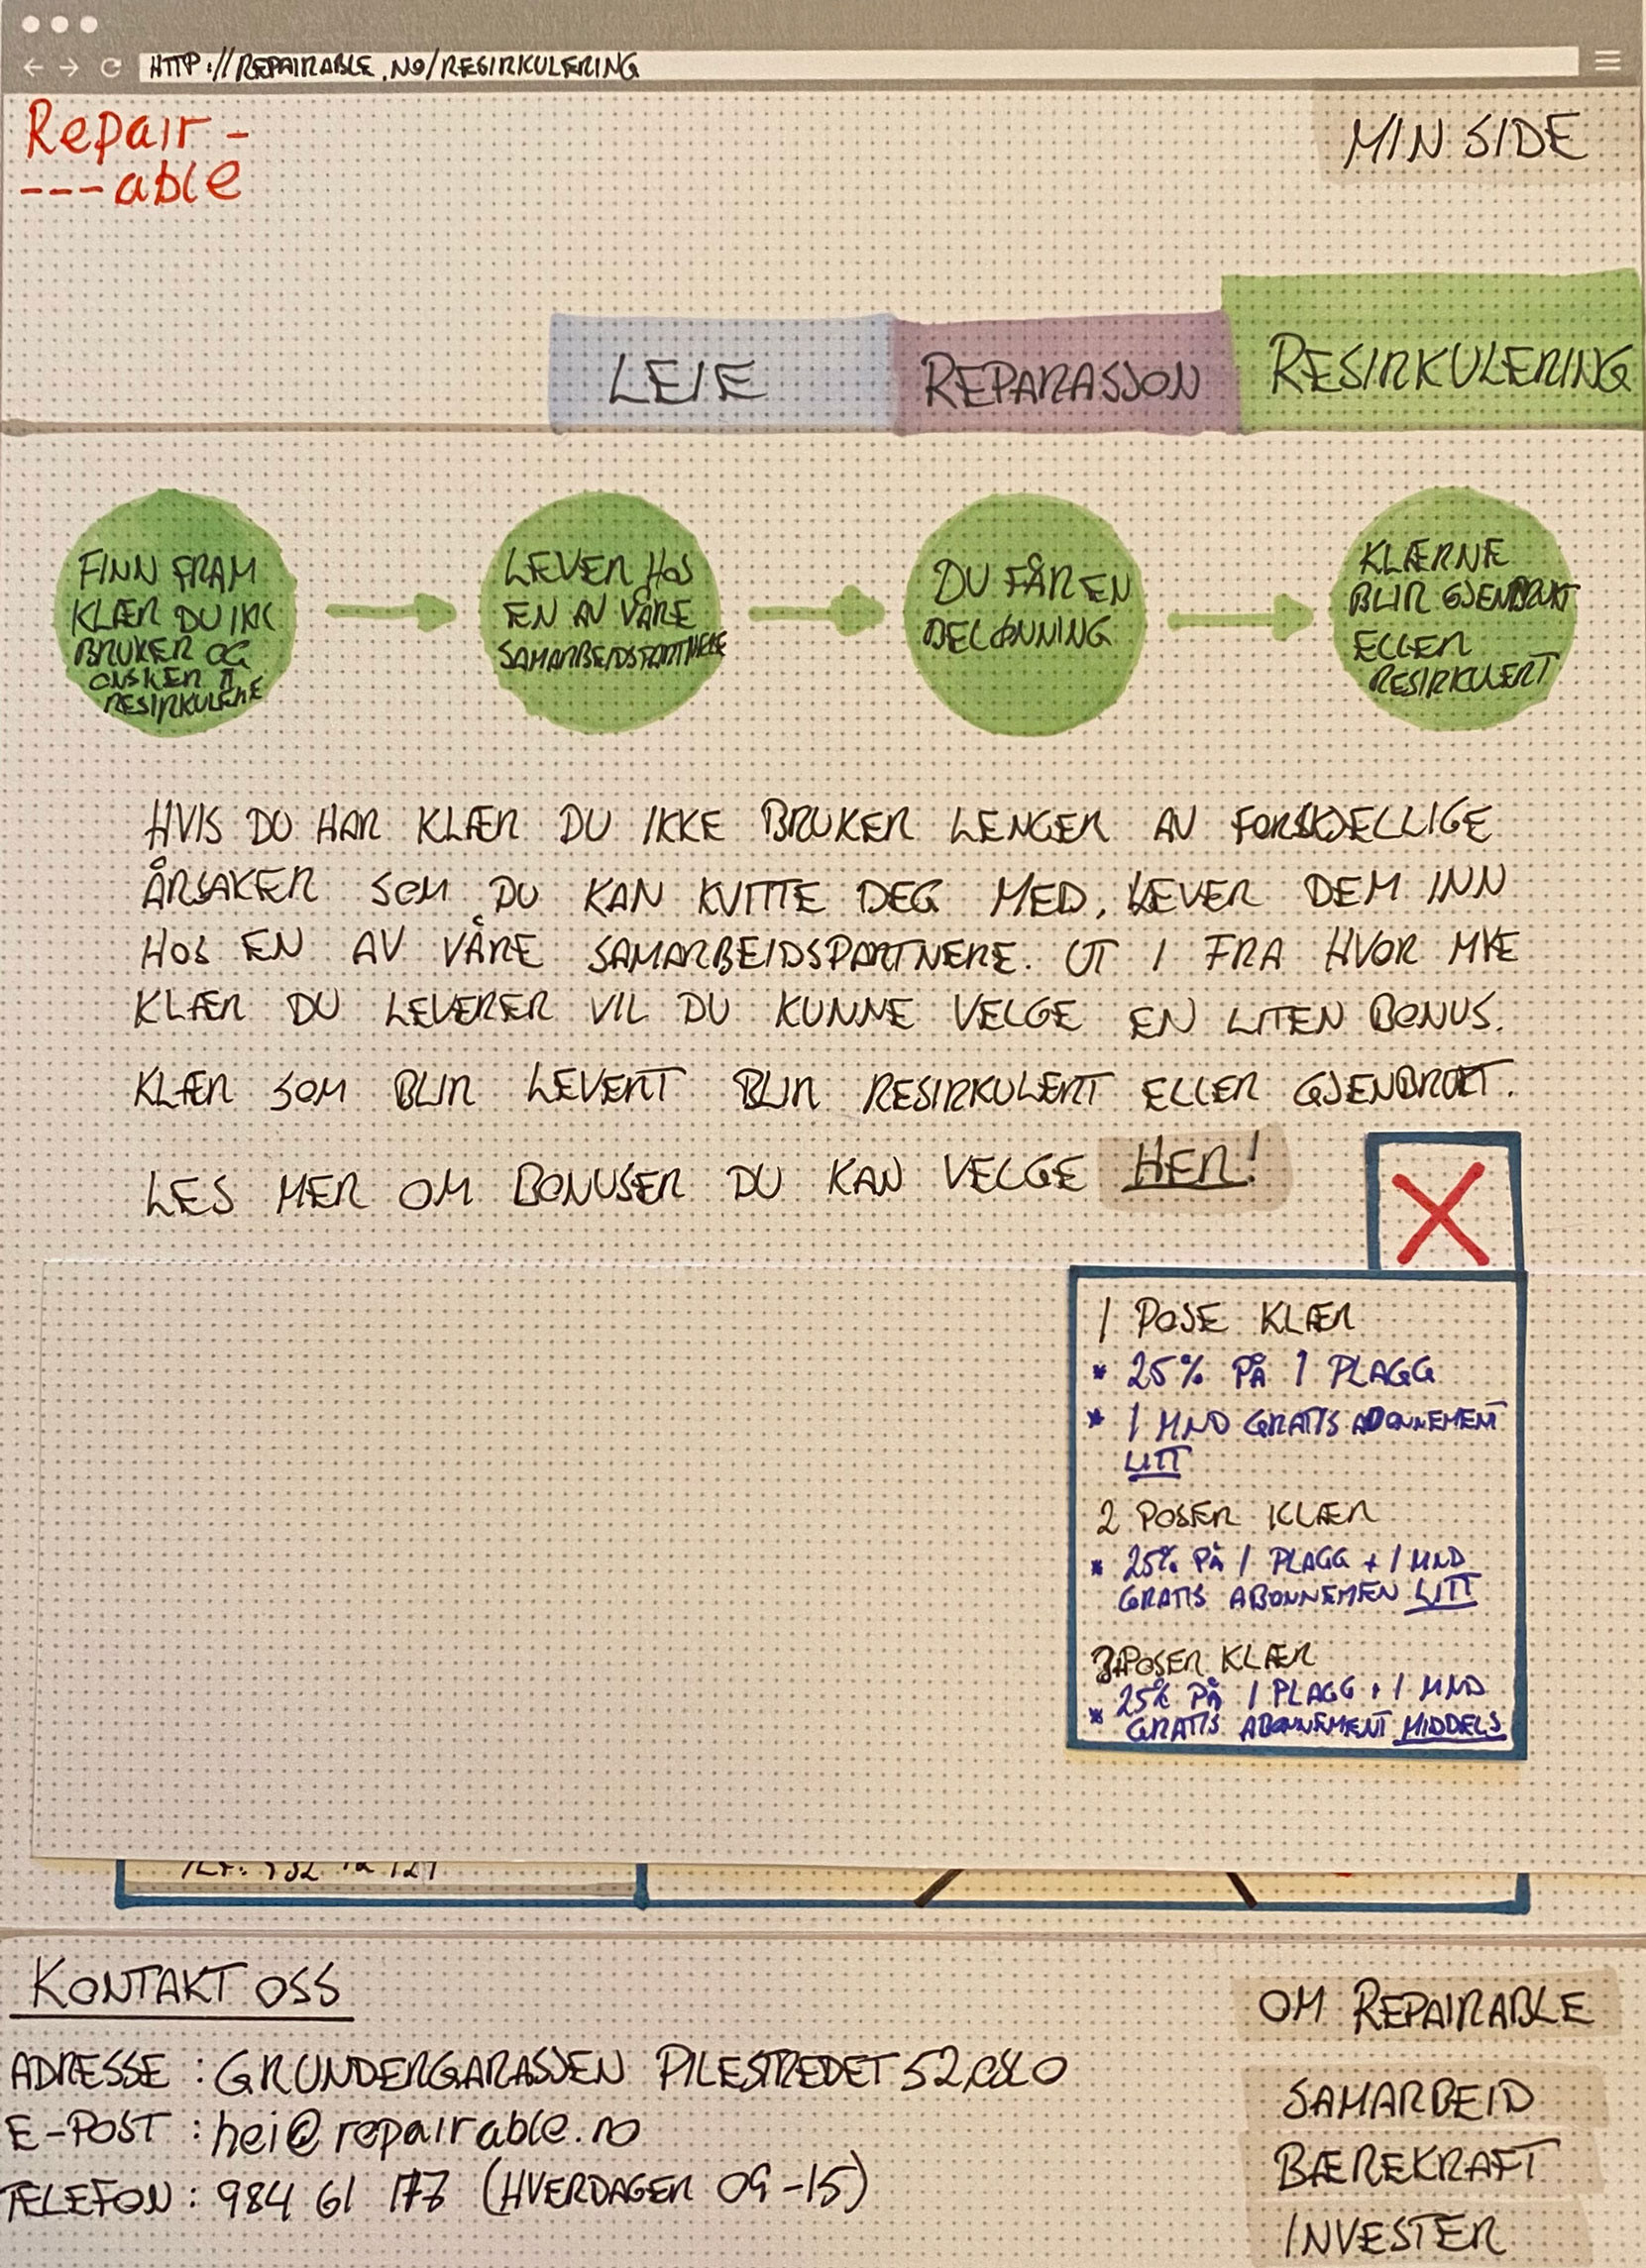 HTTP://REPAIRABLE.NO/RESIRKULERING
Repair-
---able
MIN SIDE
LEIE
REPARASJON
RESIRKULERING
FINN FRAM
KLÆR DU IKK
BRUKER OG
ØNSKER Å
RESIRKULERE
LEVER HOS
EN AV VÅRE
SAMARBEIDSPARTNERE
DU FÅR EN
BELØNNING
KLÆRNE
BLIR GJENBRUKT
ELLER
RESIRKULERT
HVIS DU HAR KLÆR DU IKKE BRUKER LENGER AV FORSKJELLIGE
ÅRSAKER SOM DU KAN KVITTE DEG MED, LEVER DEM INN
HOS EN AV VÅRE SAMARBEIDSPARTNERE. UT I FRA HVOR MYE
KLÆR DU LEVERER VIL DU KUNNE VELGE EN LITEN BONUS.
KLÆR SOM BLIR LEVERT BLIR RESIRKULERT ELLER GJENBRUKT.
LES MER OM BONUSER DU KAN VELGE HER!
1 POSE KLÆR
* 25% PÅ 1 PLAGG
* 1 MND GRATIS ABONNEMENT
LITT
2 POSER KLÆR
* 25% PÅ 1 PLAGG + 1 MND
GRATIS ABONNEMEN LITT
POSER KLÆR
* 25% PÅ 1 PLAGG + 1 MND
GRATIS ABONNEMENT MIDDELS
KONTAKT OSS
ADRESSE : GRUNDERGARASJEN PILESTREDET 52, OSLO
E-POST : hei@repairable.no
TELEFON : 984 61 177 (HVERDAGER 09-15)
OM REPAIRABLE
SAMARBEID
BÆREKRAFT
INVESTER